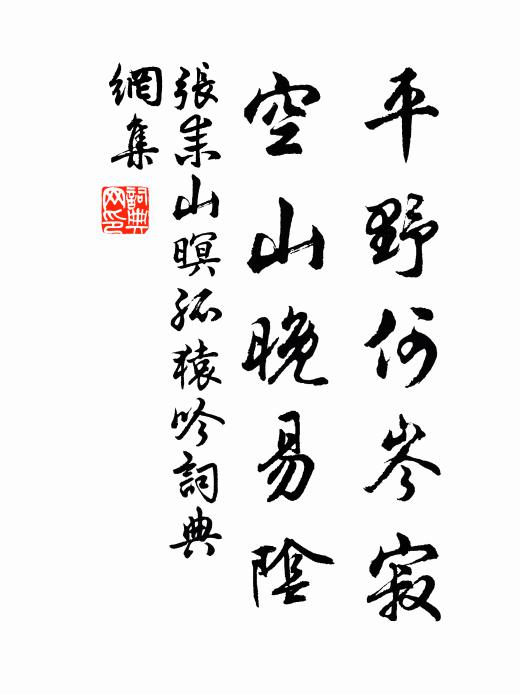 平野何岑寂
空山晚易陰
張耒山暝孤猿吟詞典
網集
詞典
网印